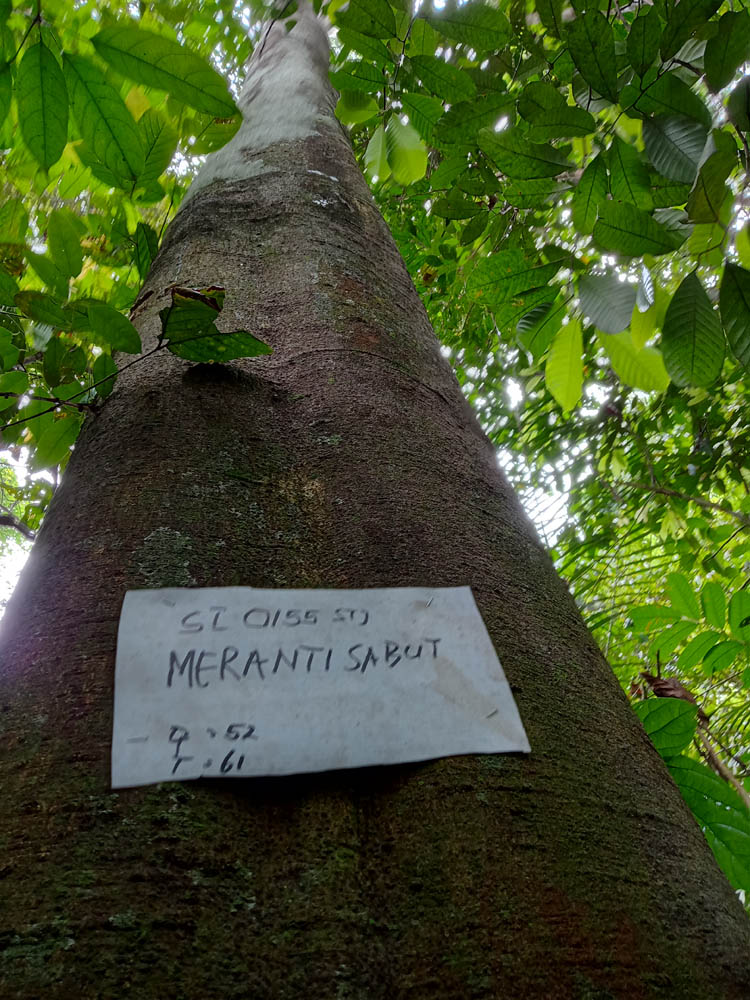 SI 0155 STJ
MERANTI SABUT
Φ : 52
T : 61